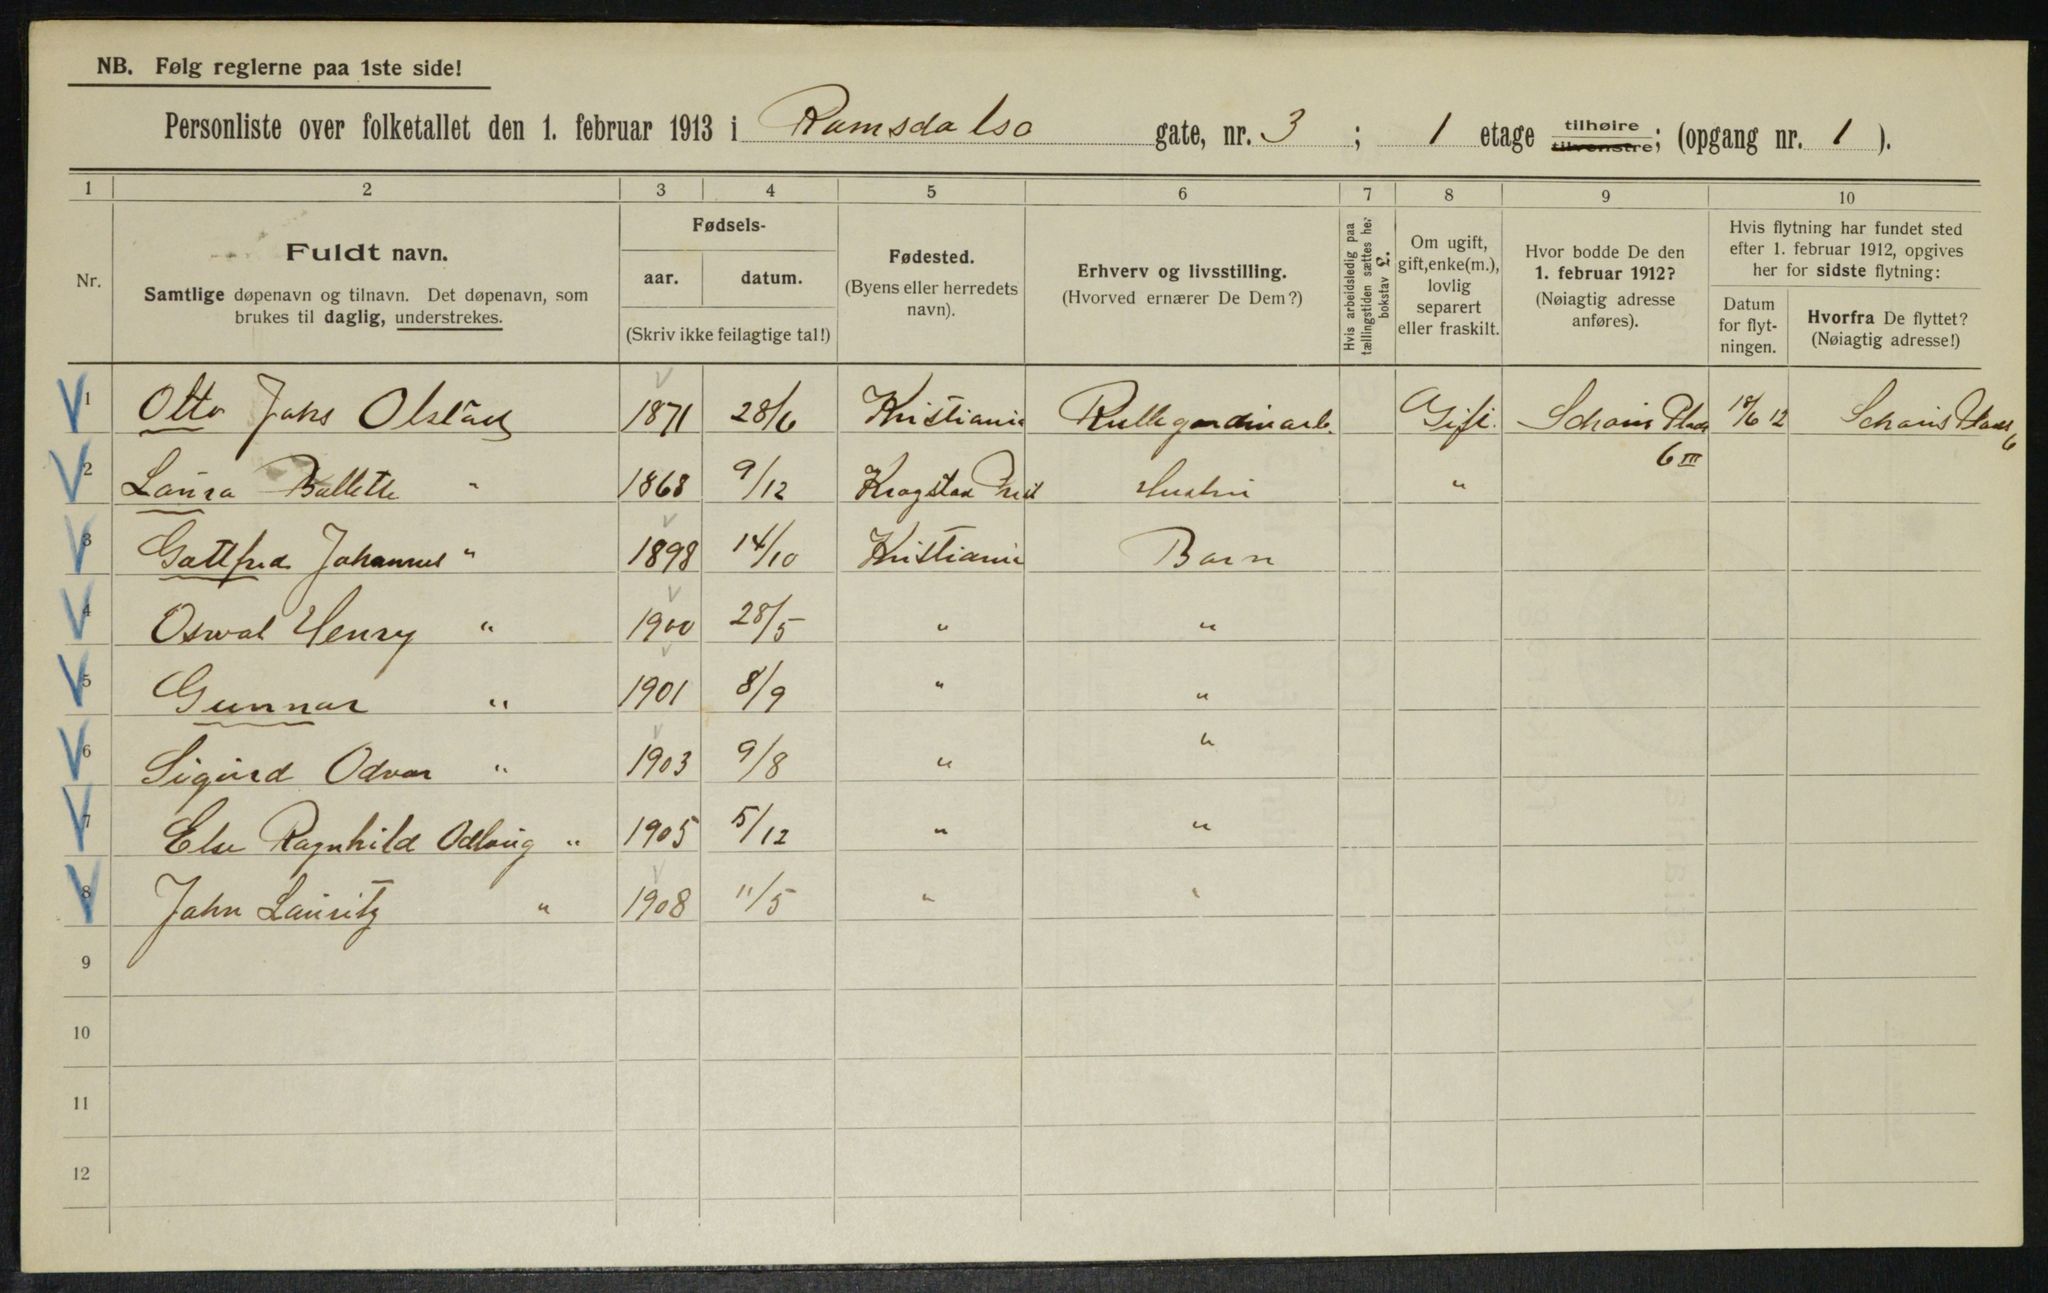 NB. Følg reglerne paa 1ste side!
Personliste over folketallet den 1. februar 1913 i Romsdalso gate, nr. 3; 1 etage tilhøire tilvenstre; (opgang nr. 1).
1 2 3 4 5 6 7 8 9 10
Nr.
Fuldt navn.
Samtlige døpenavn og tilnavn. Det døpenavn, som
brukes til daglig, understrekes.
Fødsels-
aar. datum.
(Skriv ikke feilagtige tal!)
Fødested.
(Byens eller herredets
navn).
Erhverv og livsstilling.
(Hvorved ernærer De Dem?)
Hvis arbeidsledig paa
tællingstiden sættes her
bokstav L.
Om ugift,
gift, enke(m.),
lovlig
separert
eller fraskilt.
Hvor bodde De den
1. februar 1912?
(Nøiagtig adresse
anføres).
Hvis flytning har fundet sted
efter 1. februar 1912, opgives
her for sidste flytning:
Datum
for flyt-
ningen.
Hvorfra De flyttet?
(Nøiagtig adresse!)
1 Otto Johs Olstad 1871 28/6 Kristiania Rullegardinarb. Gift. Schous Plads 6 III 18/6 12 Schous Plads 6
2 Laura " 1868 9/12 Kragstad Hustru "
3 Gottfred Johannes " 1898 14/10 Kristiania Barn
4 Oswal Henry " 1900 28/5 " "
5 Gunnar " 1901 8/9 " "
6 Sigurd Odvar " 1903 9/8 " "
7 Else Ragnhild Odlaug " 1905 5/12 " "
8 John Lauritz " 1908 11/5 " "
9
10
11
12